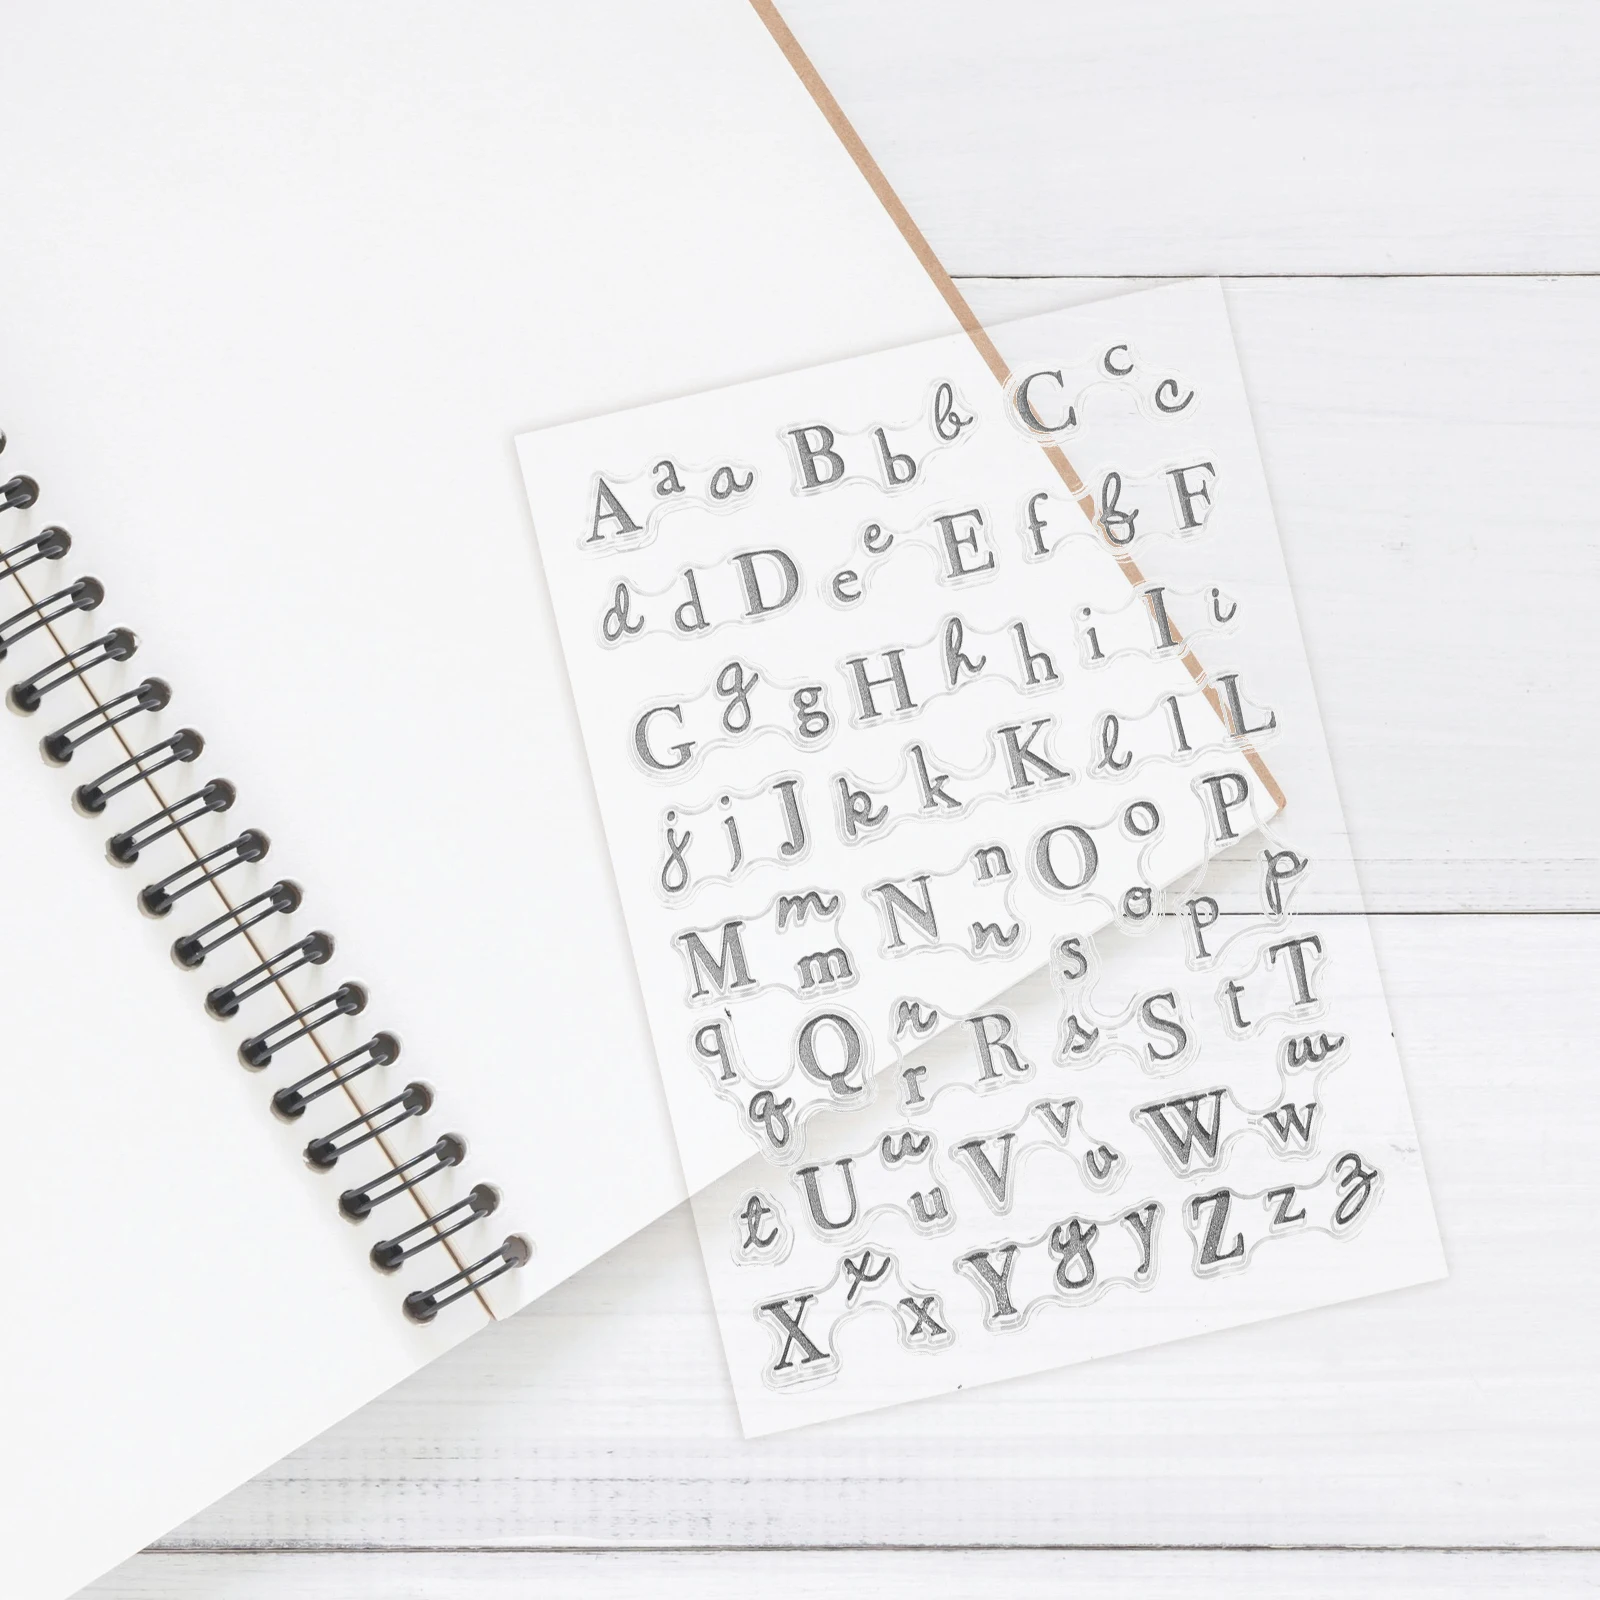 A a a B b b C c c
d d D e e E f f F
G g g H h h i I i
j j J k k K l l L
M m m N n n O o o P p p
q Q q r r R s s S t T
t U u u V v v W w w
X x x Y y y Z z z